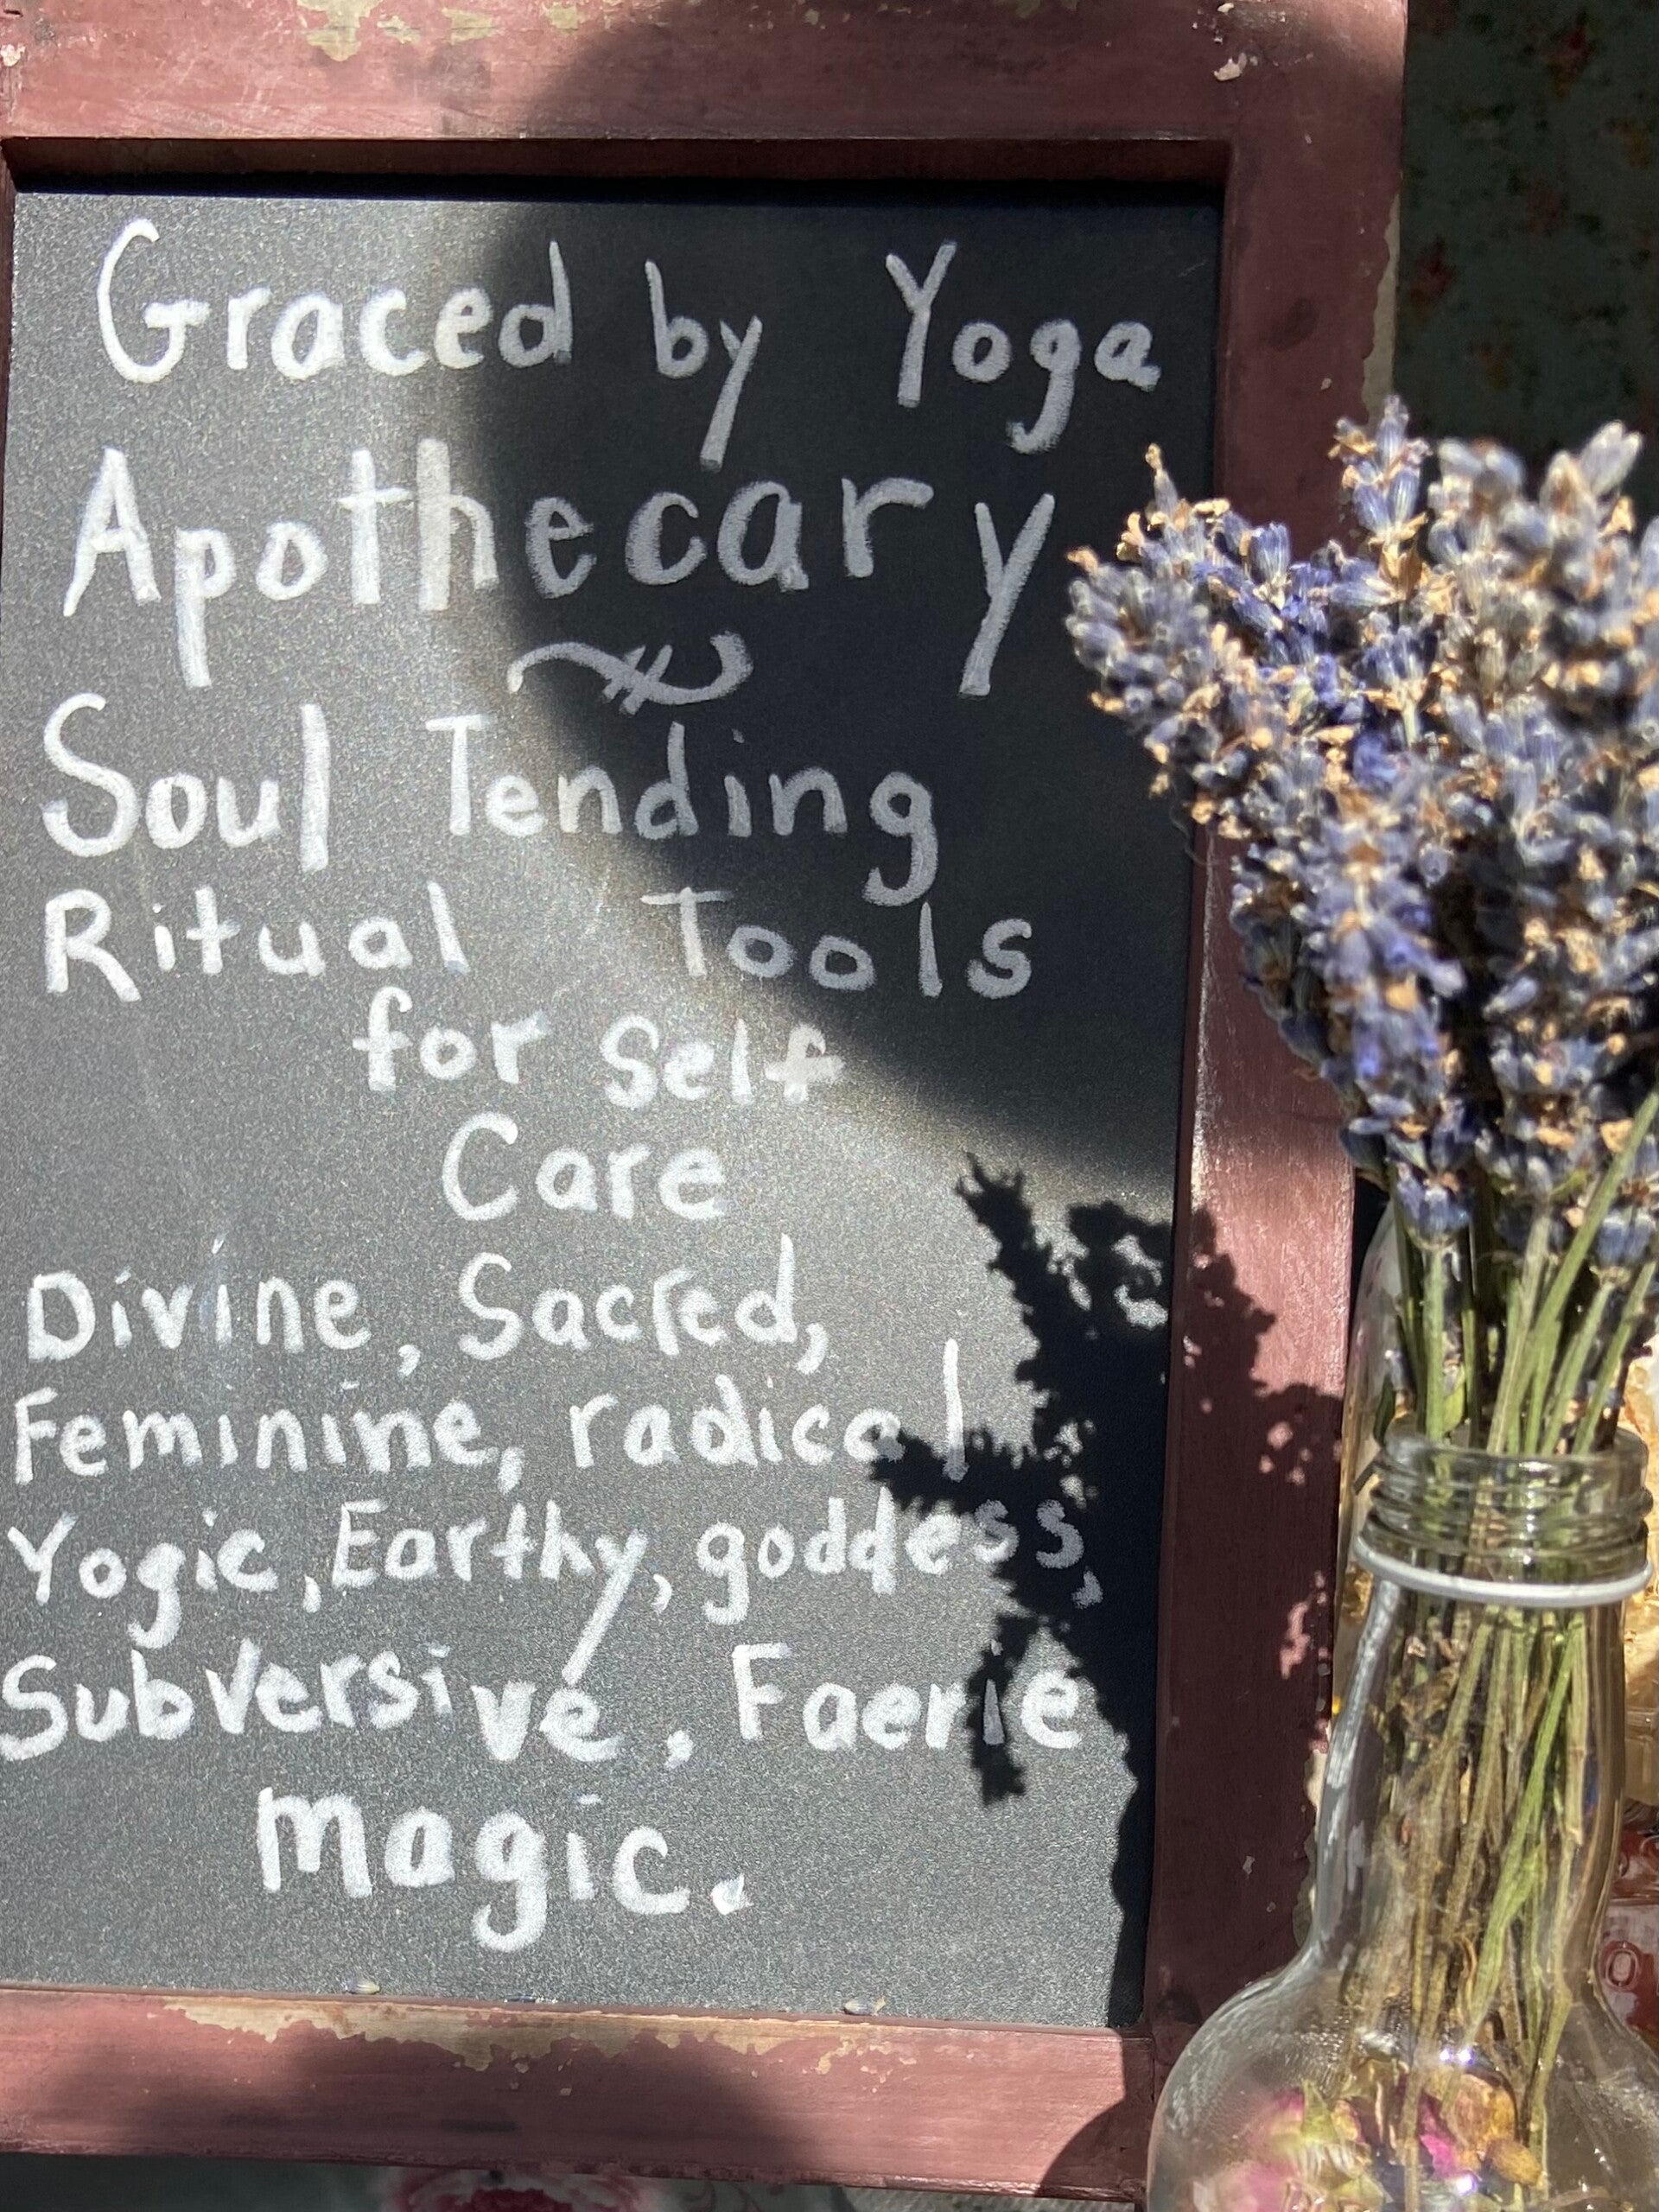 Graced by Yoga
Apothecary
Soul Tending
Ritual Tools
for Self
Care
Divine, Sacred,
Feminine, radical
Yogic, Earthy, goddess,
Subversive, Faerie
magic.